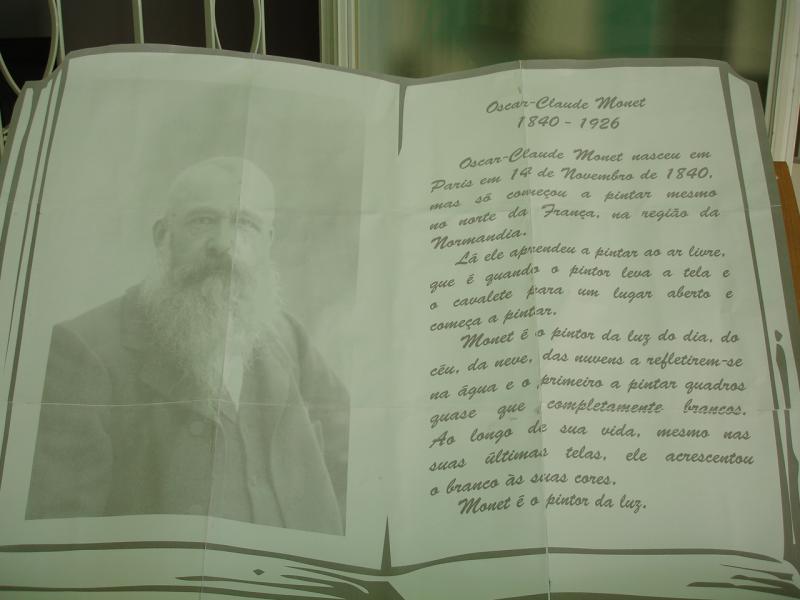 Oscar-Claude Monet
1840 - 1926
Oscar-Claude Monet nasceu em
Paris em 14 de Novembro de 1840,
mas só começou a pintar mesmo
no norte da França, na região da
Normandia.
Lá ele aprendeu a pintar ao ar livre,
que é quando o pintor leva a tela e
o cavalete para um lugar aberto e
começa a pintar.
Monet é o pintor da luz do dia, do
céu, da neve, das nuvens a refletirem-se
na água e o primeiro a pintar quadros
quase que completamente brancos.
Ao longo de sua vida, mesmo nas
suas últimas telas, ele acrescentou
o branco às suas cores.
Monet é o pintor da luz.